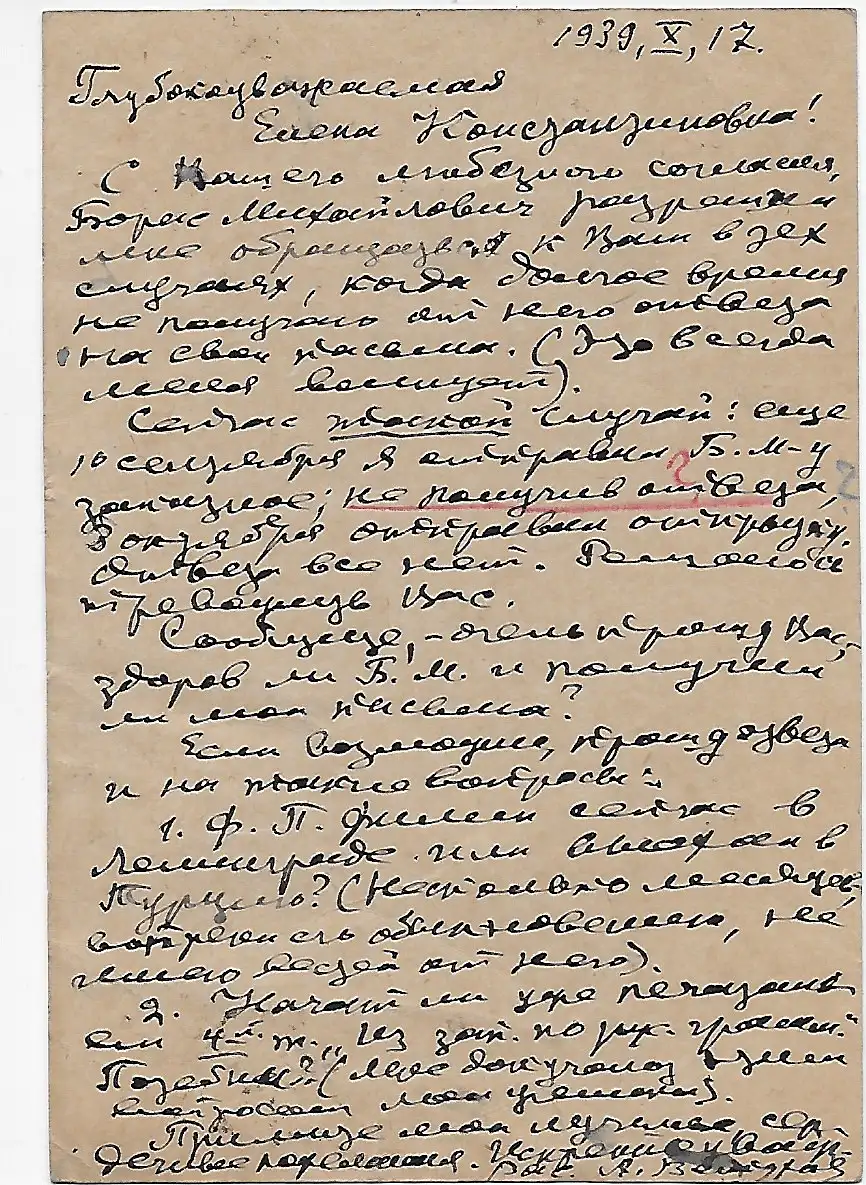 1939, X, 17.
Глубокоуважаемая
Елена Константиновна!
С Вашего любезного согласия,
Борис Михайлович разрешил
мне обращаться к Вам в тех
случаях, когда долгое время
не получаю от него ответа
на свои письма. (Это всегда
меня волнует).
Сейчас такой случай: еще
10 сентября я отправил Б.М-у
заказное; не получив ответа,
3 октября отправил открытку.
Ответа все нет. Решаюсь
тревожить Вас.
Сообщите, - очень прошу Вас,
здоров ли Б.М. и получил
ли мои письма?
Если возможно, прошу ответа
и на такие вопросы:
1. Ф. П. Филин сейчас в
Ленинграде или
Турцию? (Несколько месяцев,
вопреки его обыкновению, не
имею вестей от него).
2. Начат ли уже печатани-
ем 4й т. "Из зап. по рус. грамм."
Потебни? (Мне докучают этим
вопросом мои ученики).
Примите мои лучшие сер-
дечные пожелания. Искренне Вам
А.